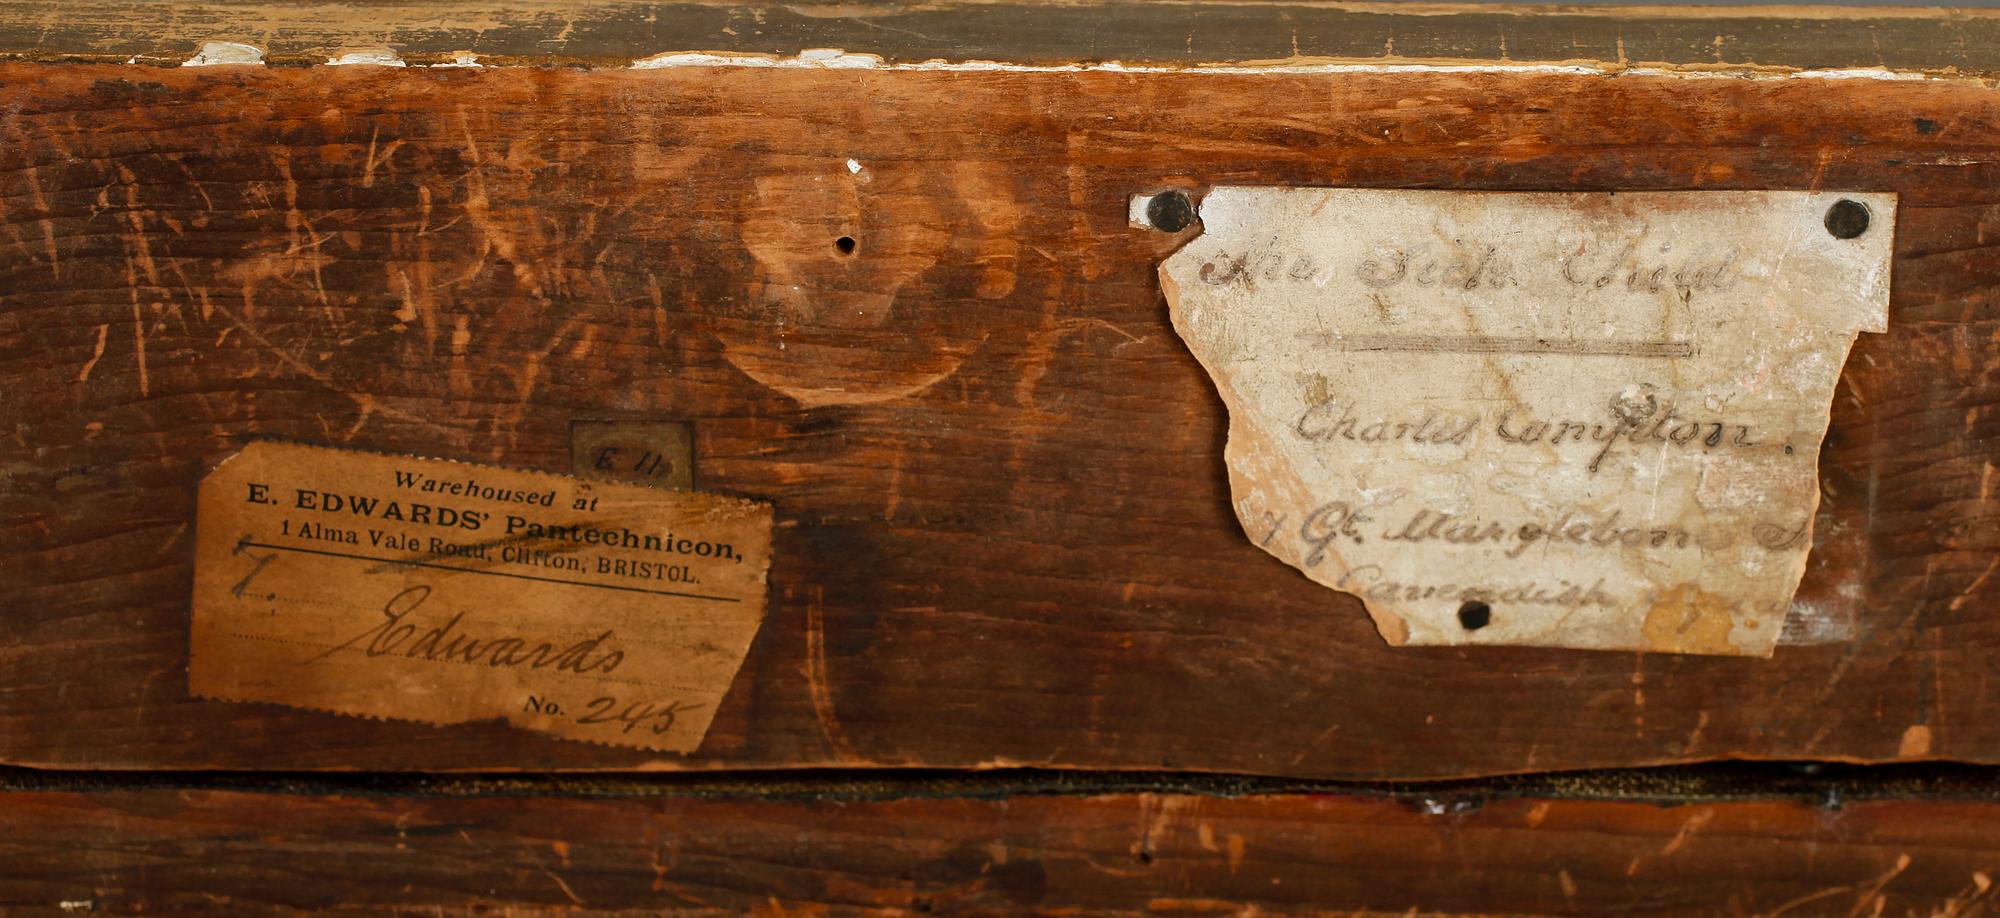 Warehoused at
E. EDWARDS' Pantechnicon,
1 Alma Vale Road, Clifton, BRISTOL.
Edwards
No. 245
E 11
The Sick Child
Charles Compton.
7 Gt. Marylebone S
Cavendish Squa